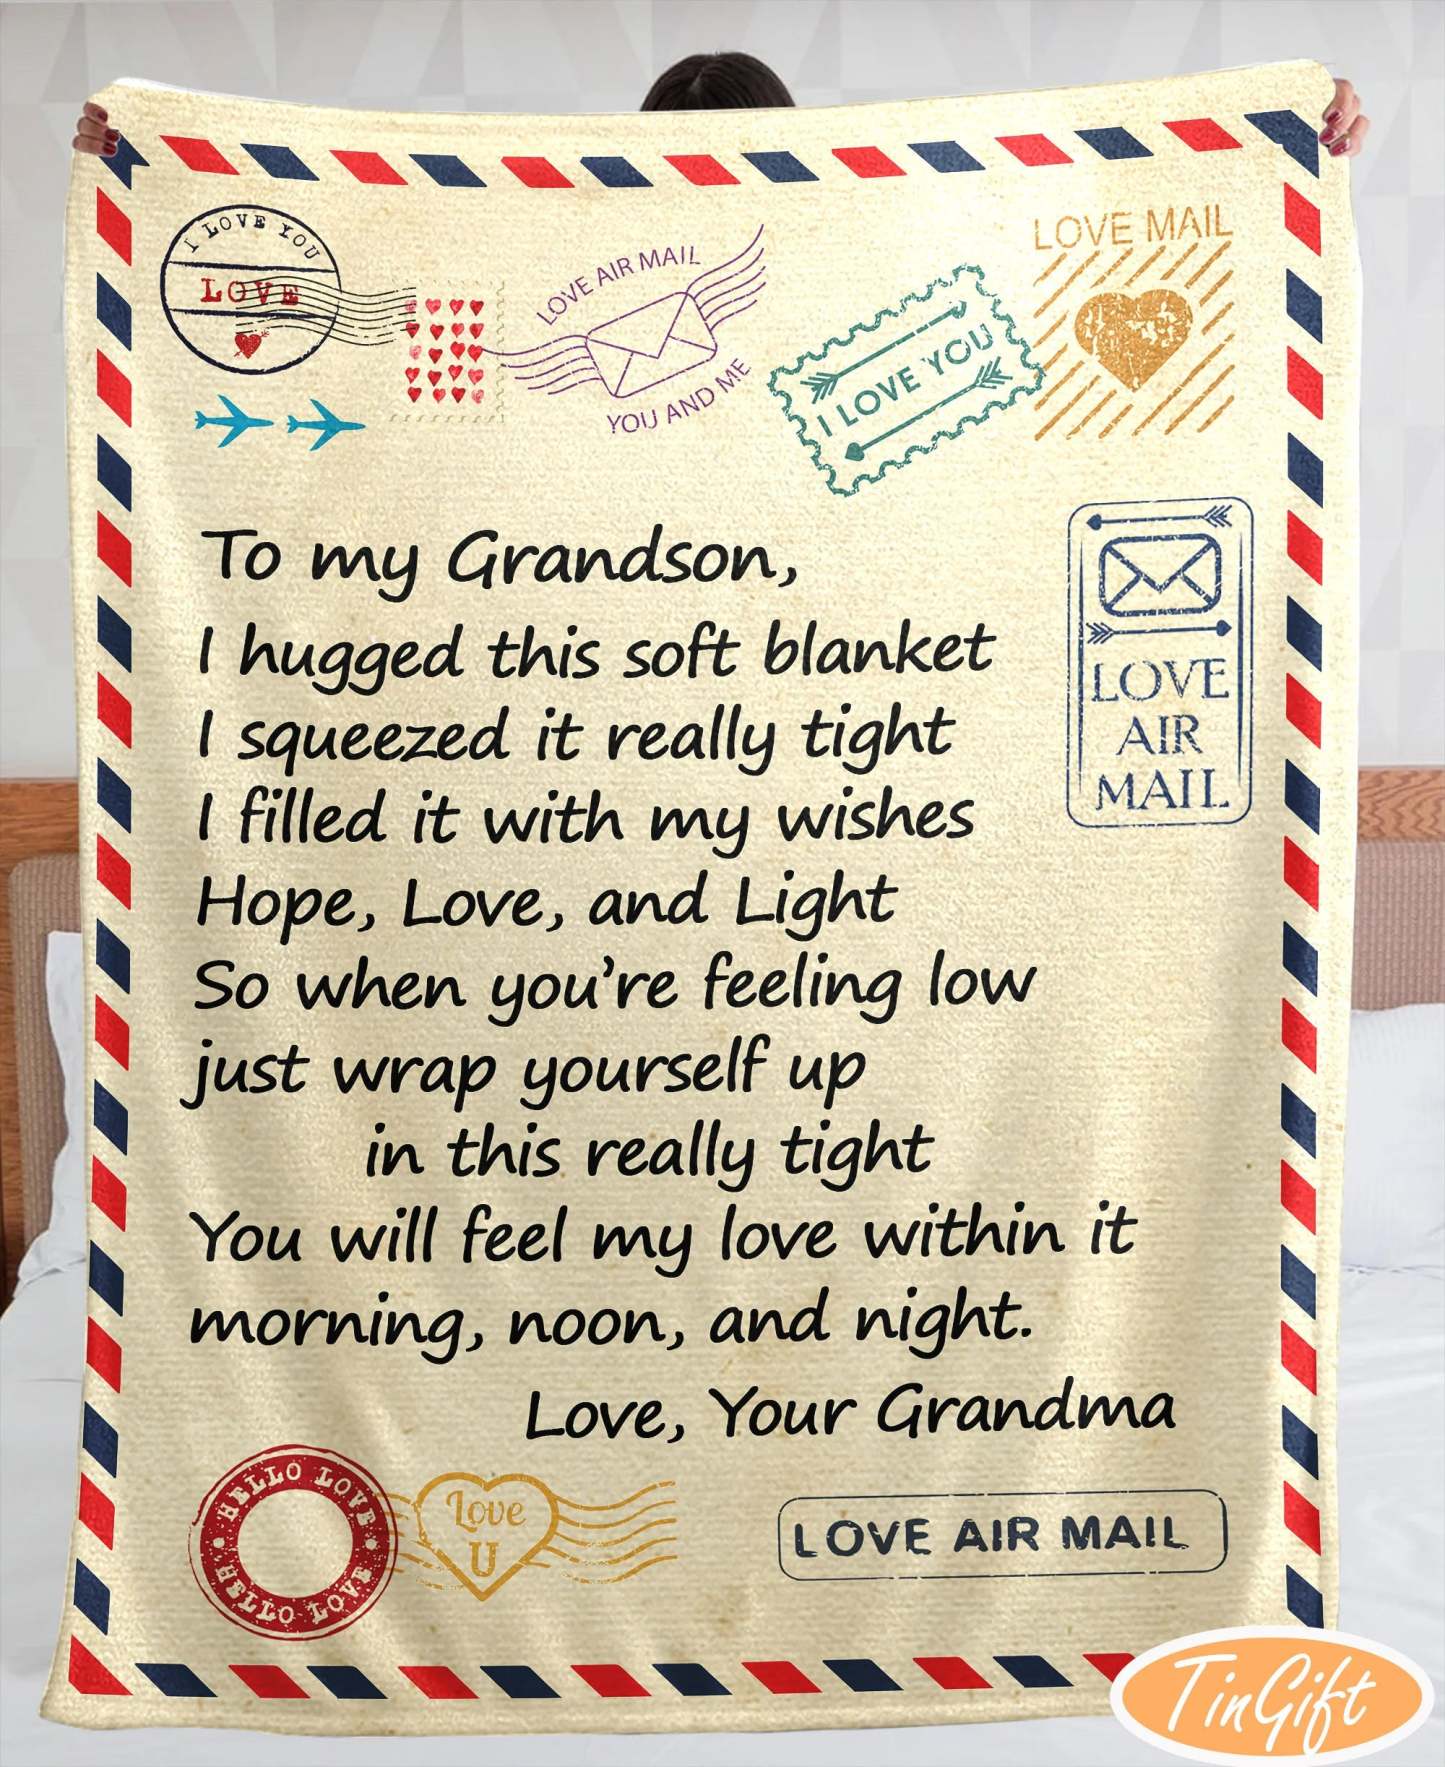 I LOVE YOU
LOVE
LOVE AIR MAIL
YOU AND ME
I LOVE YOU
LOVE MAIL
To my Grandson,
I hugged this soft blanket
I squeezed it really tight
I filled it with my wishes
Hope, Love, and Light
So when you're feeling low
just wrap yourself up
in this really tight
You will feel my love within it
morning, noon, and night.
Love, Your Grandma
LOVE
AIR
MAIL
HELLO LOVE
HELLO LOVE
Love
U
LOVE AIR MAIL
TinGift